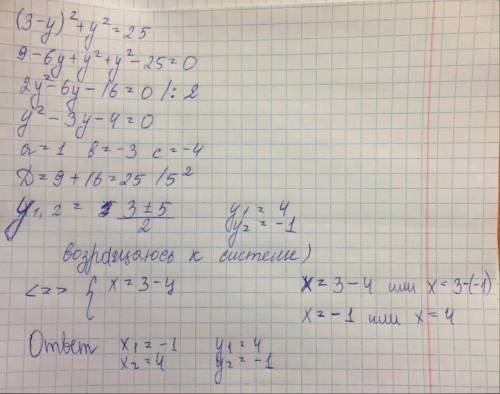 (3-y)²+y²=25
9-6y+y²+y²-25=0
2y²-6y-16=0 /: 2
y²-3y-4=0
a=1 b=-3 c=-4
D=9+16=25 /5²
y₁,₂ = (3±5)/2 y₁=4
y₂=-1
возрдщаюсь к системе)
<=> { x=3-y x=3-4 или x=3-(-1)
x=-1 или x=4
Ответ x₁=-1 y₁=4
x₂=4 y₂=-1